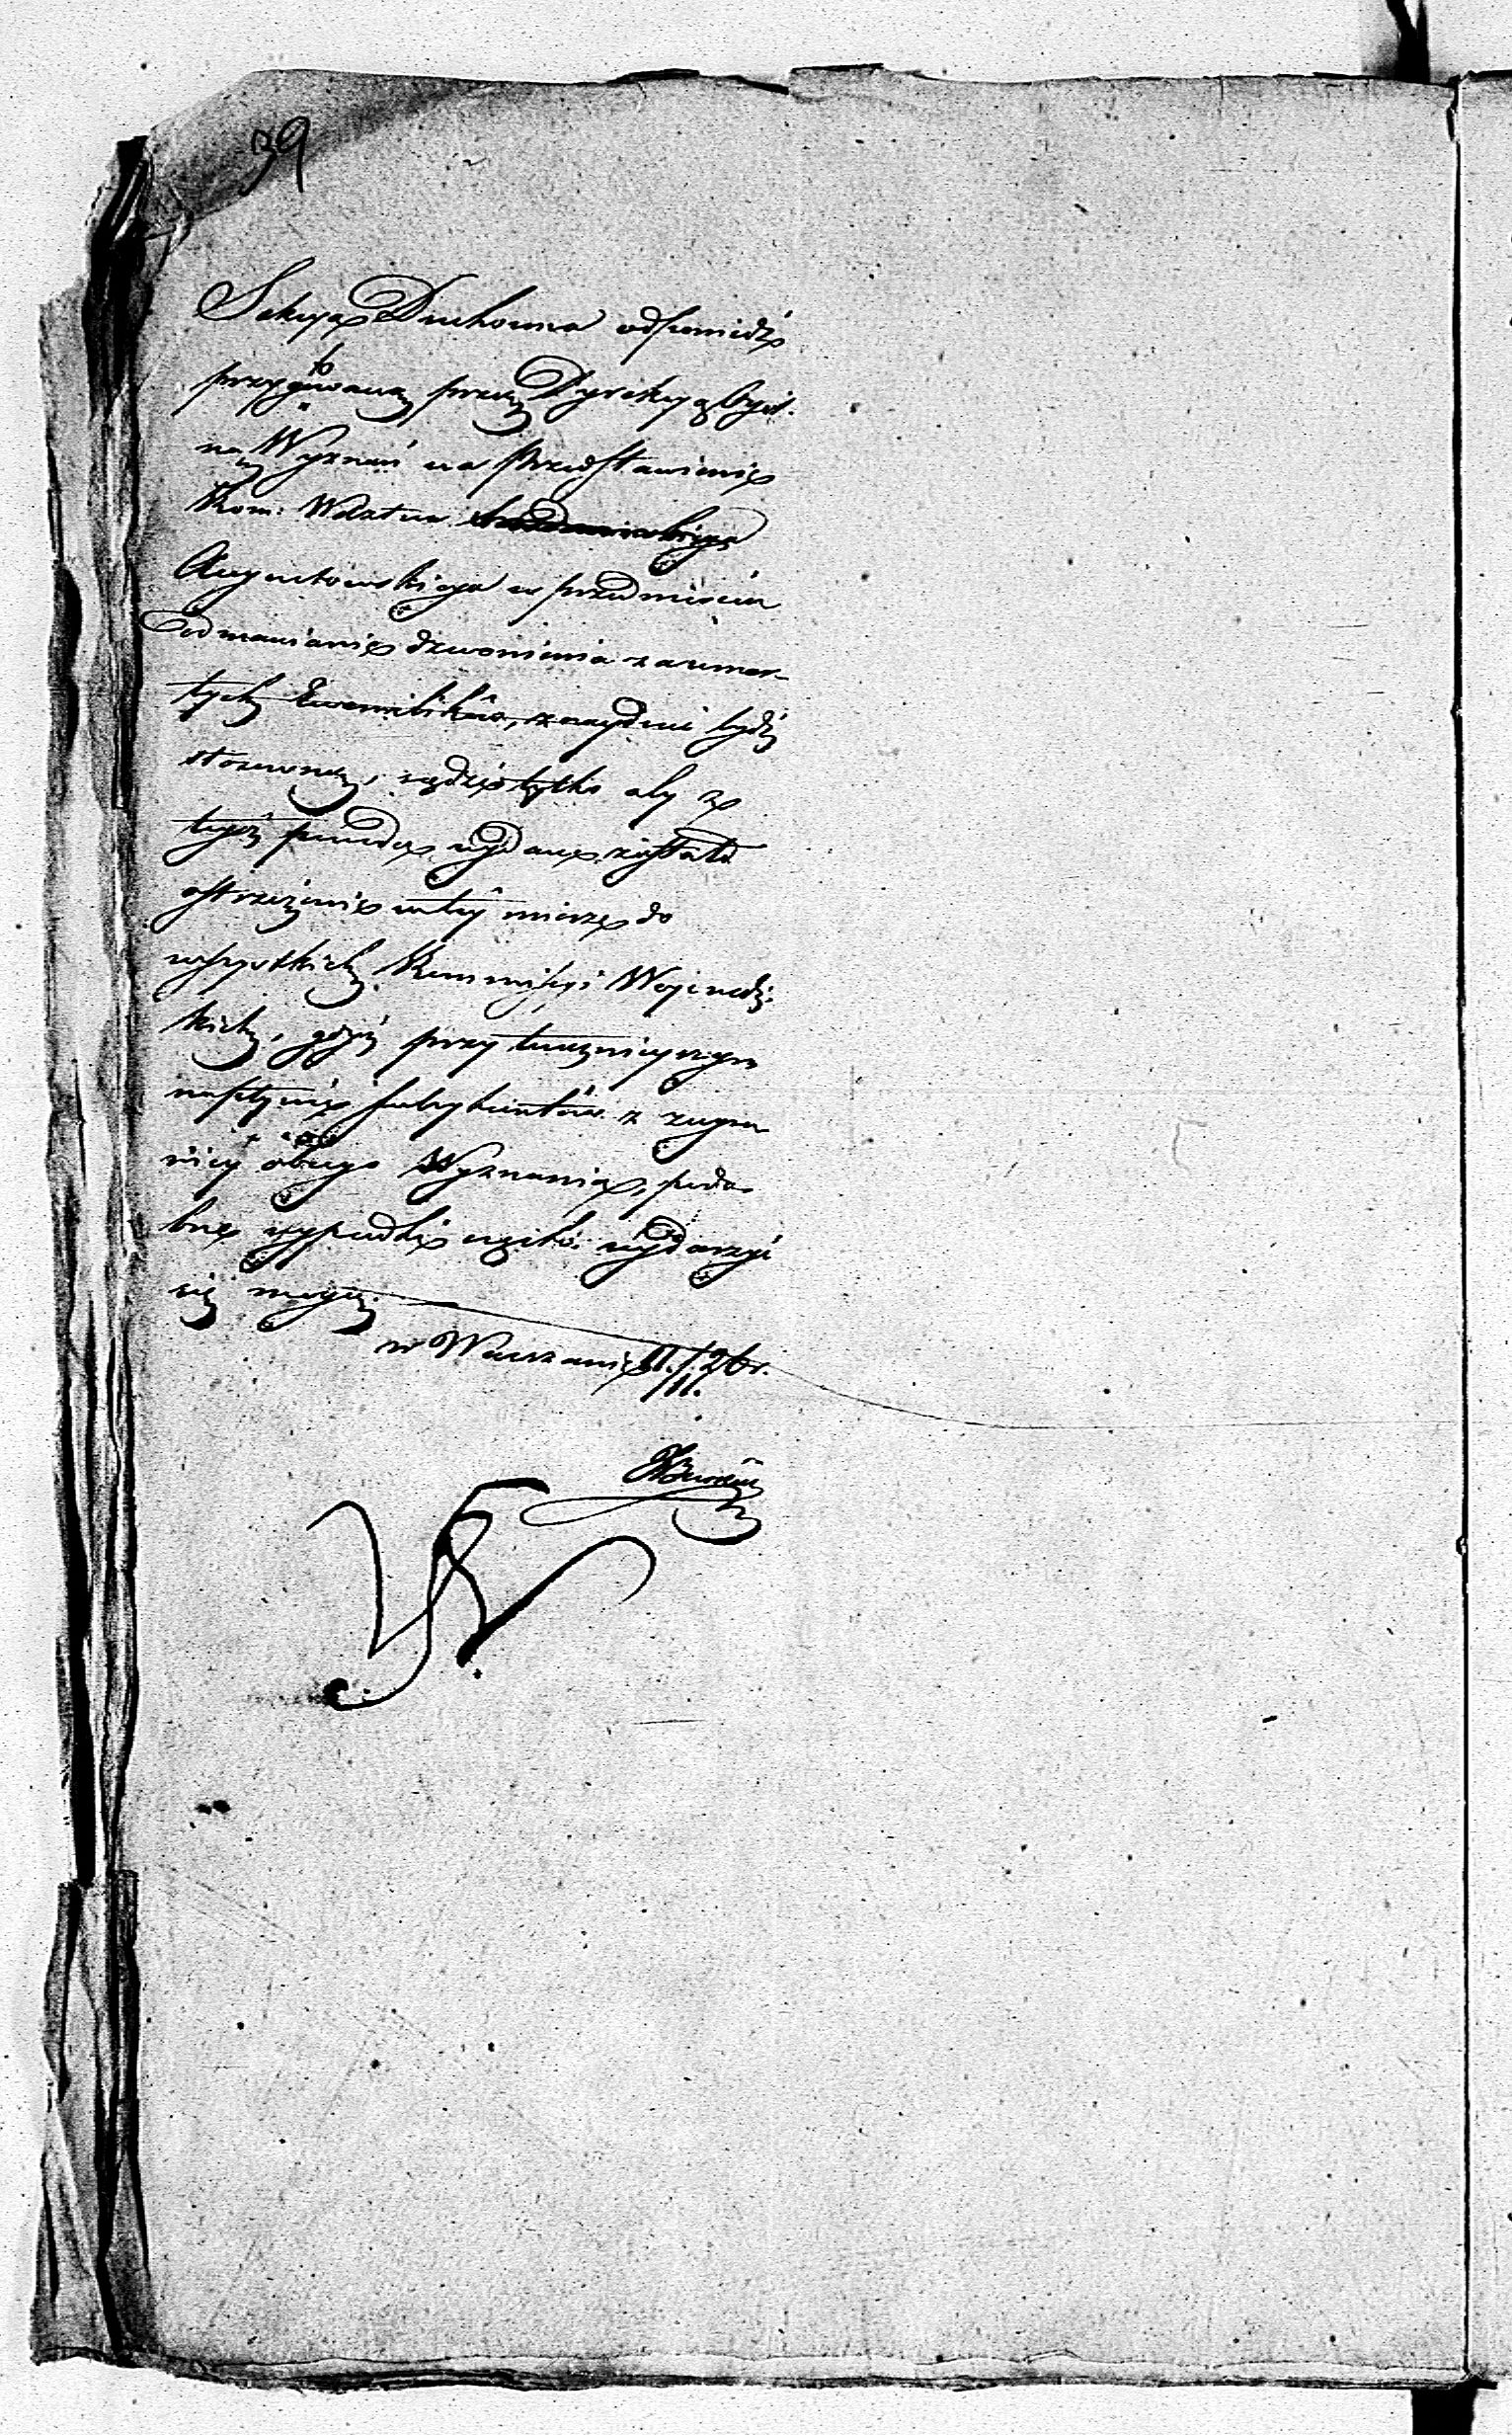 39
Sekcya Duchowna odpowiedź
przygotowaną przez Dyrekcyą Ogól.
ną Wyznań na przedstawienie
Kom: Wdztwa
Augustowskiego w przedmiocie
odmawiania dzwonienia za umar-
łych Ewanielików, znayduie bydź
stosowną, sądzi tylko aby z
tego powodu wydane zostało
ostrzeżenie w tey mierze do
wszystkich Kommissyi Wojewódz.
kich, gdyż przy teraznieyszym
napływie fabrykantów z zagra
nicy obcego Wyznania, podo
bne wypadki często wydarzyć
się mogą.
w Warszawie